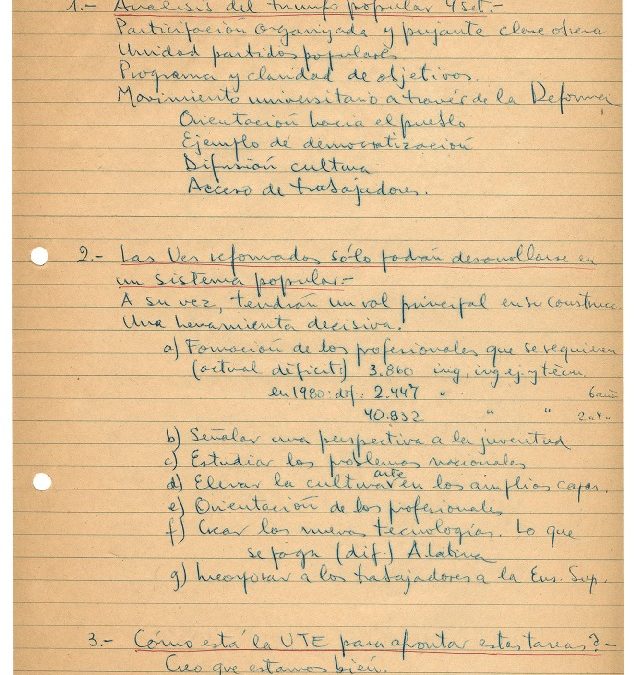 1.- Análisis del triunfo popular 4 set.-
Participación organizada y pujante clase obrera
Unidad partidos populares
Programa y claridad de objetivos.
Movimiento universitario a través de la Reforma
Orientación hacia el pueblo
Ejemplo de democratización
Difusión cultura
Acceso de trabajadores.
2.- Las Ues reformadas sólo podrán desarrollarse en
un sistema popular.-
A su vez, tendrán un rol principal en su construcc.
Una herramienta decisiva.
a) Formación de los profesionales que se requieren
(actual déficit:) 3.860 ing, ing ej. y técn.
en 1980: def. 2.447 " 6 año
40.832 " "
b) Señalar una perspectiva a la juventud
c) Estudiar los problemas nacionales
d) Elevar la cultura arte en los amplios capas.
e) Orientación de los profesionales
f) Crear las nuevas tecnologías. Lo que
se paga (dif.) A. latina
g) Incorporar a los trabajadores a la Ens. Sup.
3.- Cómo está la UTE para afrontar estas tareas?-
Creo que estamos bien.